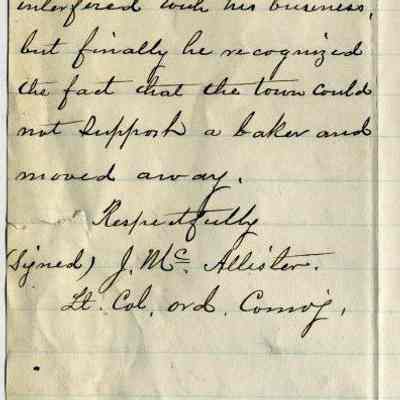 interfered with his business,
but finally he recognized
the fact that the town could
not support a baker and
moved away.
Respectfully
(Signed) J. Mc. Allister.
Lt. Col. ord. Comd'g,